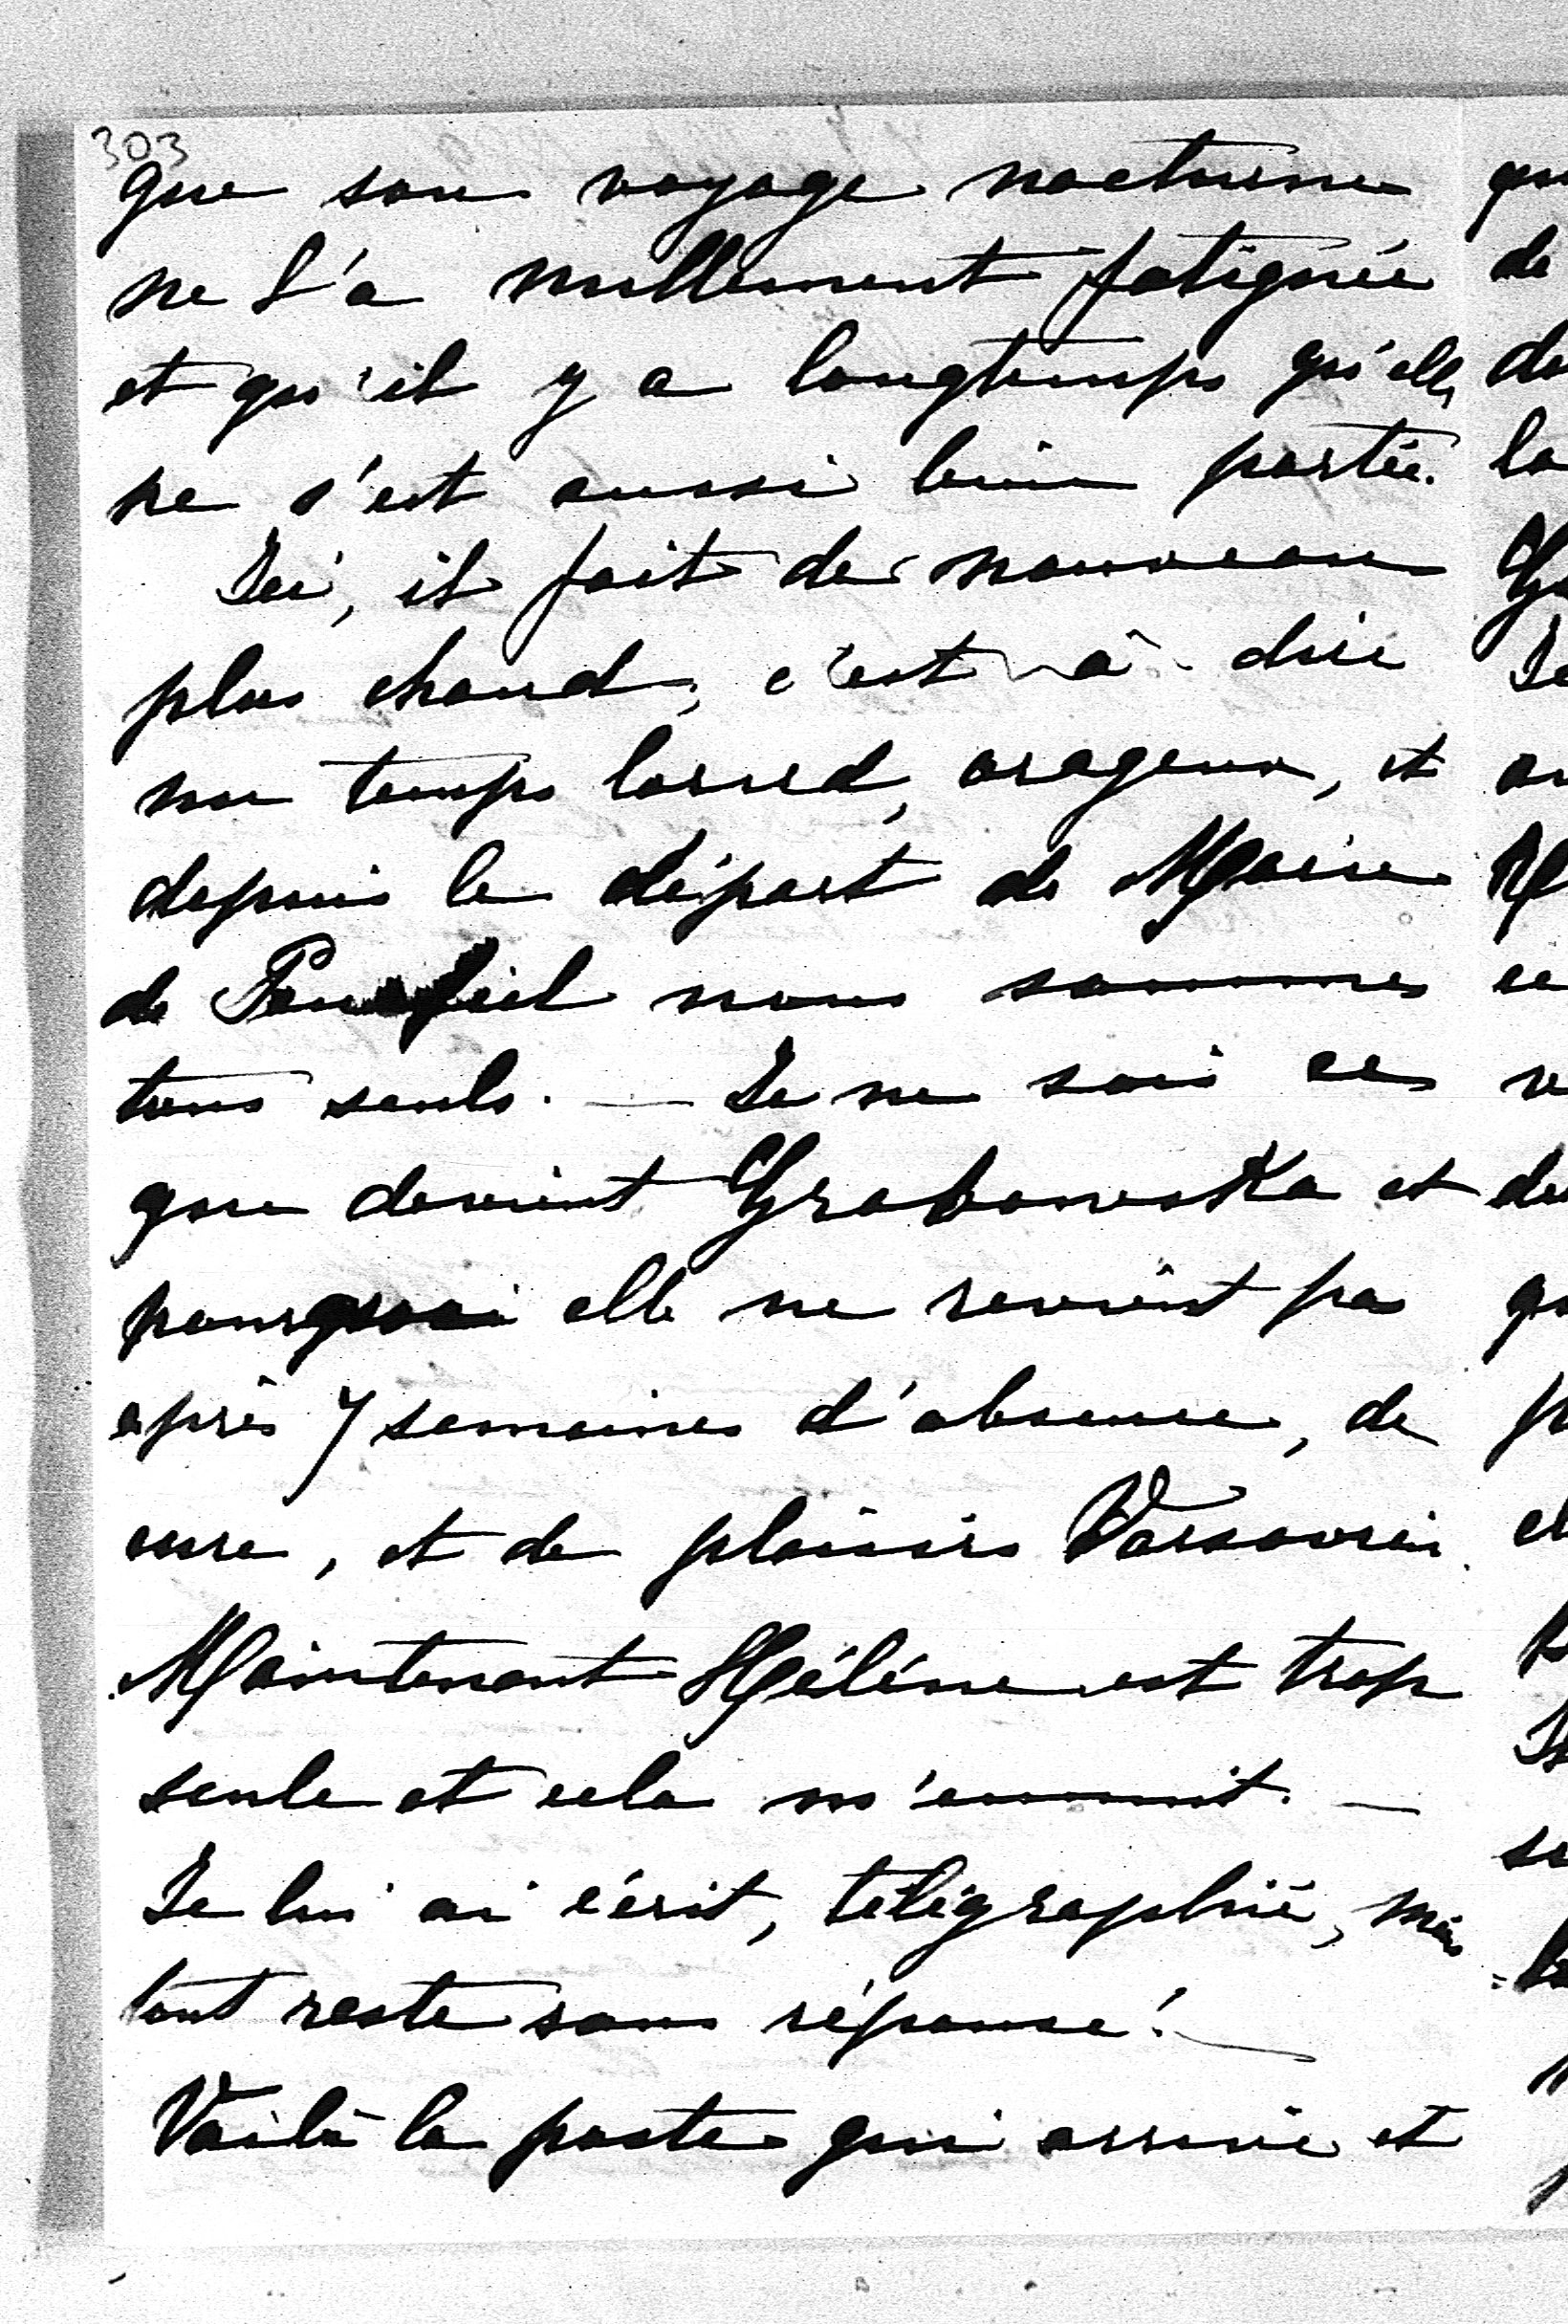 303
que son voyage nocturne
ne l'a nullement fatiguée
et qu'il y a longtemps qu'elle
ne s'est aussi bien portée.
Ici, il fait de nouveau
plus chaud, c'est à dire
un temps lourd, orageux, et
depuis le départ de Marie
de nous sommes
tous seuls. — Je ne sais ce
que devient Grabowska et
pourquoi elle ne revient pas
après 7 semaines d'absence, de
cure, et de plaisirs
Maintenant Hélène est trop
seule et cela m'ennuit. —
Je lui ai écrit, télégraphié, mais
tout reste sans réponse! —
Voilà la poste qui arrive et